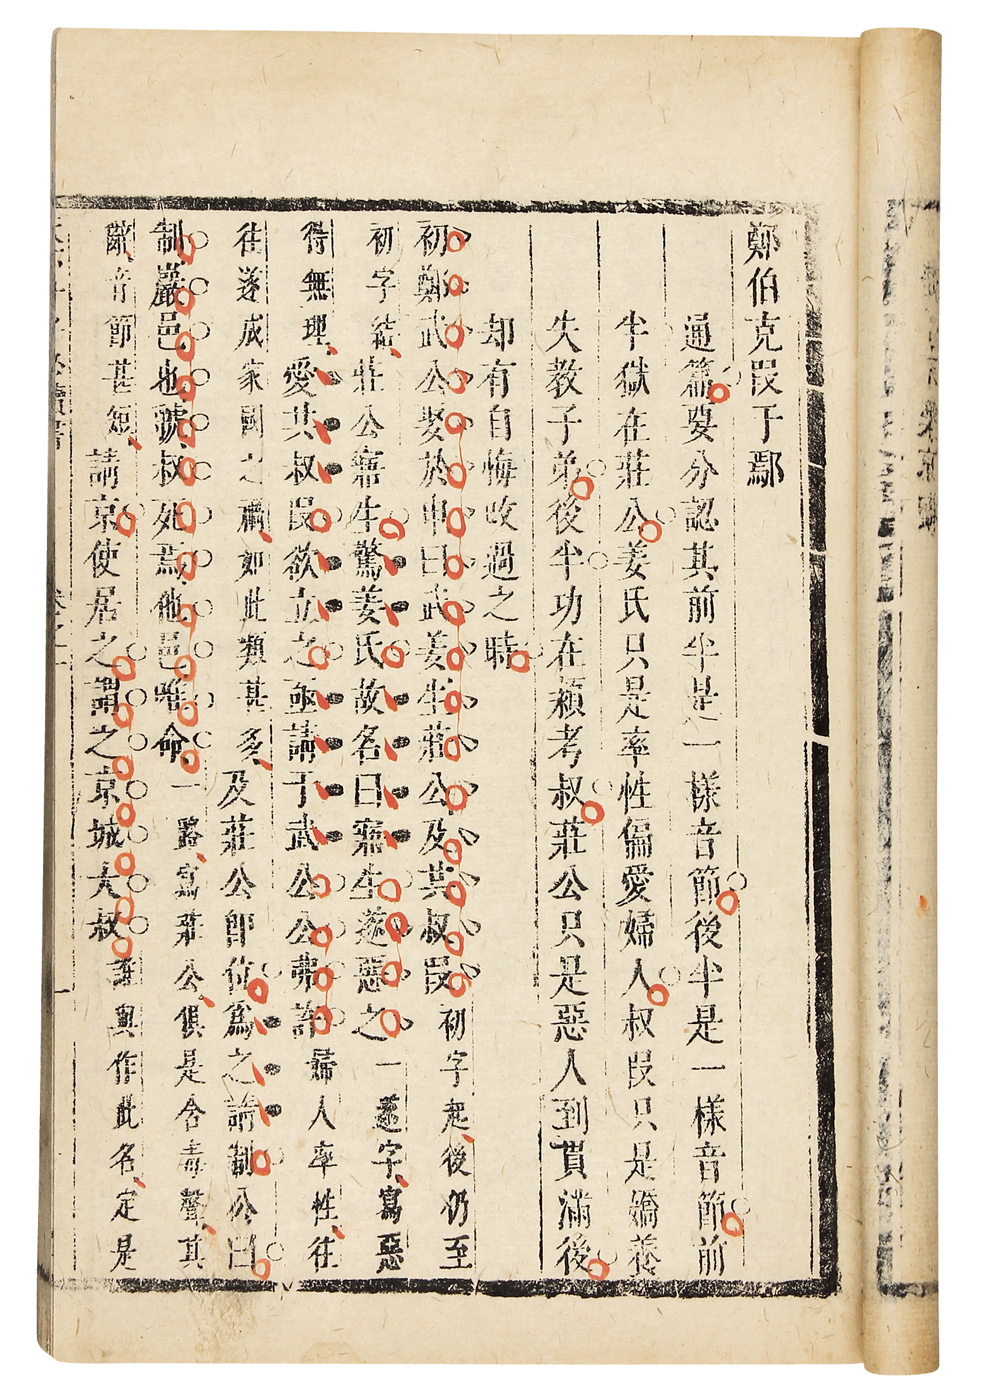 鄭伯克段于鄢
通篇要分認其前半是一樣音節後半是一樣音節前
半獄在莊公姜氏只是率性偏愛婦人叔段只是嬌養
失教子弟後半功在潁考叔莊公只是惡人到貫滿後
却有自悔改過之時
初鄭武公娶於申曰武姜生莊公及共叔段初字起後仍至
初字結莊公寤生驚姜氏故名曰寤生遂惡之一遂字寫惡
得無理愛共叔段欲立之亟請于武公公弗許婦人率性往
往遂成家國之禍如此類甚多及莊公卽位爲之請制公曰
制巖邑也虢叔死焉他邑唯命一路寫莊公俱是含毒聲其
辭音節甚短請京使居之謂之京城大叔誰與作此名定是